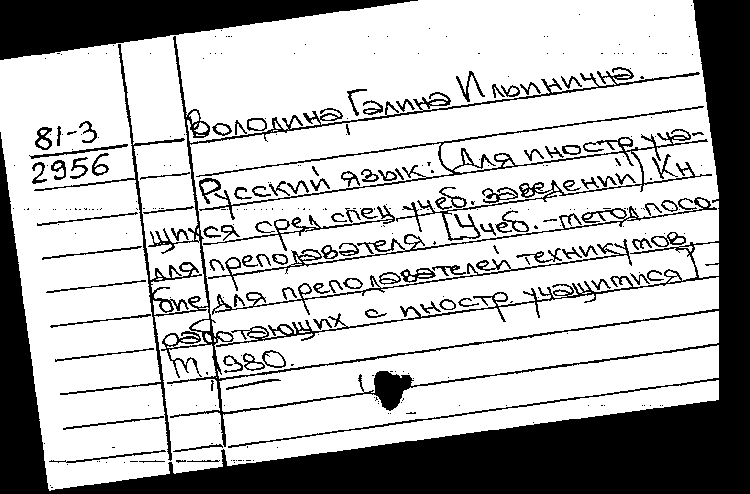 Володина, Галина Ильинична.
81-3
2956
Русский язык: (Для иностр. уча-
щихся сред. спец. учеб. заведений). Кн.
для преподавателя. [Учеб.-метод. посо-
бие для преподавателей техникумов,
работающих с иностр. учащимися] -
М., 1980.